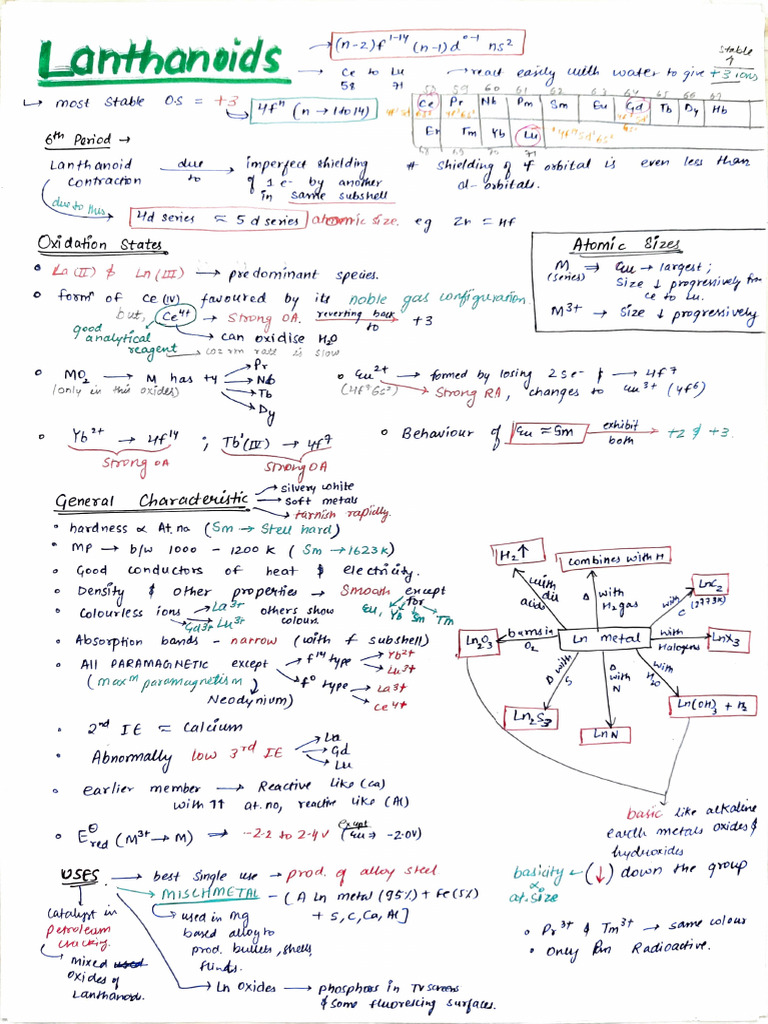 Lanthanoids
(n-2)f¹⁻¹⁴ (n-1)d⁰⁻¹ ns²
Ce to Lu
58 71
react easily with water to give +3 ions
stable
most stable O.S = +3
4fⁿ (n → 1 to 14)
58 59 60 61 62 63 64 65 66 67
Ce Pr Nb Pm Sm Eu Gd Tb Dy Hb
Er Tm Yb Lu
68 69 70 71
6th Period →
Lanthanoid contraction due to imperfect shielding of 1 e⁻ by another in same subshell
# shielding of f orbital is even less than d-orbitals.
due to this
4d series ≈ 5d series atomic size. eg Zr = Hf
Oxidation States
La(II) & Ln(III) → predominant species.
formⁿ of Ce(IV) favoured by its noble gas configuration.
but, Ce⁴⁺ → Strong OA. reverting back to +3
good analytical reagent
can oxidise H₂O
rate is slow
MO₂ → M has +4
(only in this oxides)
Pr
Nb
Tb
Dy
Eu²⁺ → formed by losing 2 s e⁻ & → 4f⁷
(4f⁷6s²) Strong RA, changes to Eu³⁺ (4f⁶)
Yb²⁺ → 4f¹⁴ ; Tb(IV) → 4f⁷
Strong OA Strong OA
Behaviour of Eu ≈ Sm exhibit both +2 & +3.
Atomic Sizes
M (series) ⇒ Eu → largest;
Size ↓ progressively from
Ce to Lu.
M³⁺ → Size ↓ progressively
General Characteristic
silvery white
soft metals
tarnish rapidly.
hardness ∝ At.no (Sm → Stell hard)
MP → b/w 1000 - 1200 K (Sm → 1623K)
Good conductors of heat & electricity.
Density & other properties → Smooth except for
Eu, Yb Sm Tm
Colourless ions → La³⁺ others show
Gd³⁺ Lu³⁺ colour.
Absorption bands - narrow (with f subshell)
All PARAMAGNETIC except
f¹⁴ type
Yb²⁺
Lu³⁺
f⁰ type
La³⁺
Ce⁴⁺
(maxᵐ paramagnetism
Neodynium)
2nd IE ≈ Calcium
Abnormally low 3rd IE
La
Gd
Lu
earlier member → Reactive like (Ca)
with ↑↑ at.no, reactive like (Al)
E⊖red (M³⁺ → M) ⇒ -2.2 to 2.4V (except Eu ⇒ -2.0V)
H₂↑
with dil acids
combines with H
Δ with H₂ gas
LnC₂
with C (2773K)
Ln₂O₃
burns in O₂
Ln metal
with Halogens
LnX₃
Δ with S
Ln₂S₃
Δ with N
LnN
with H₂O
Ln(OH)₃ + H₂
basic like alkaline
earth metals oxides &
hydroxides
basicity (↓) down the group
∝
at.size
Pr³⁺ & Tm³⁺ → same colour
Only Pm Radioactive.
USES → best single use → prod. of alloy steel
MISCHMETAL - (A Ln metal (95%) + Fe (5%)
+ S, C, Ca, Al]
used in Mg
based alloy to
prod. bullets, shells,
flints.
catalyst in
petroleum
cracking.
mixed used
oxides of
Lanthanoids.
Ln oxides → phosphors in TV screens
& some fluorescing surfaces.